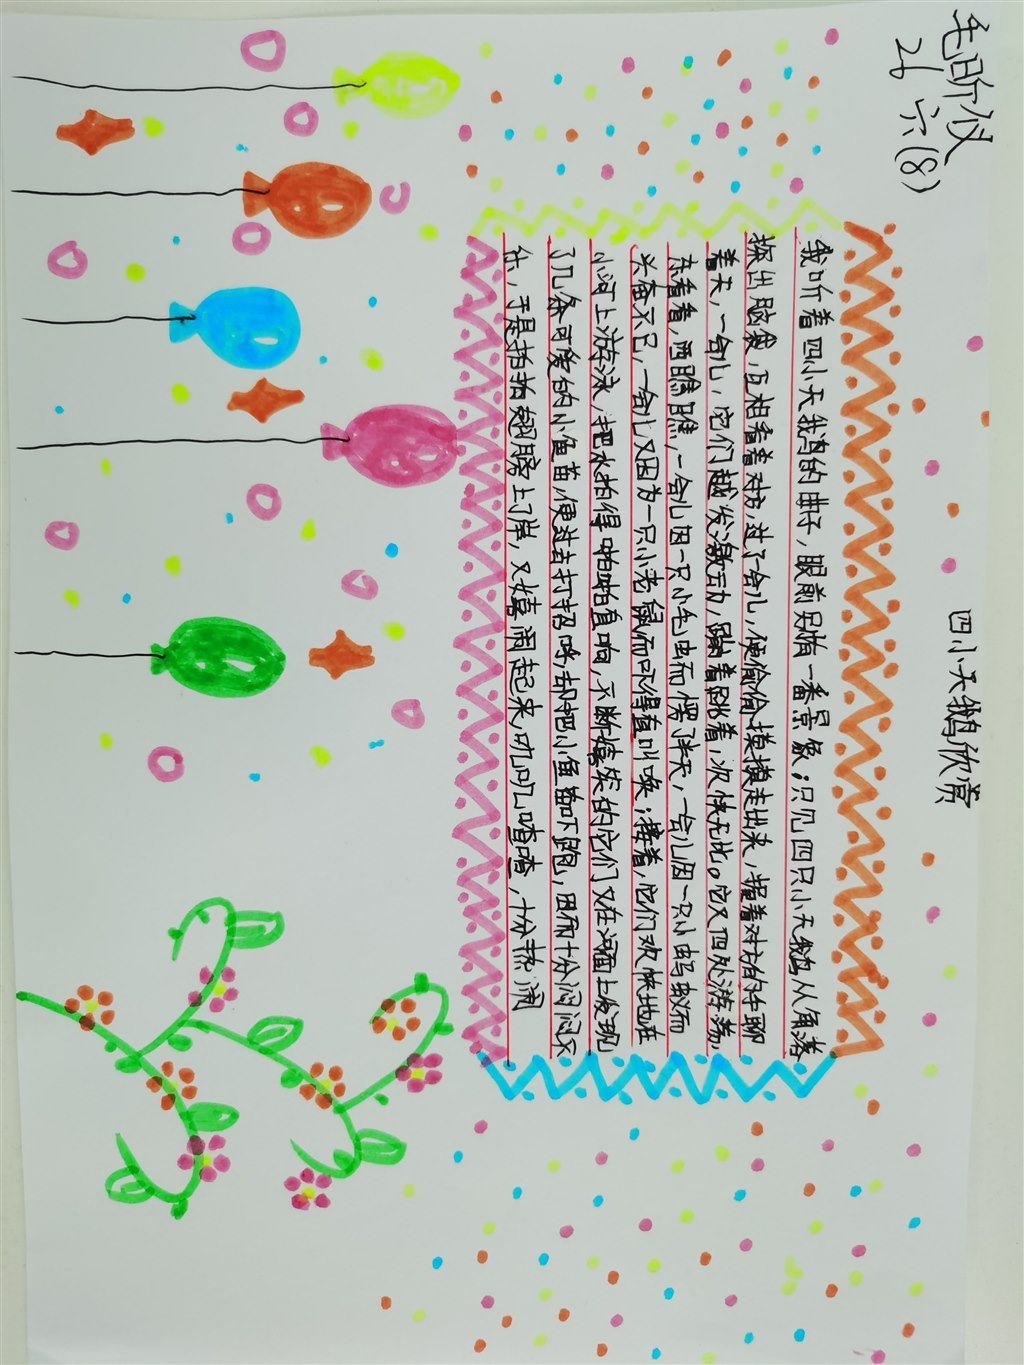 毛昕仪
26 六(8)
四小天鹅欣赏
我听着四小天鹅的曲子，眼前见有一番景象；只见四只小天鹅从角落
探出脑袋，互相看着对方，过了会儿，便偷偷摸摸走出来，握着对方的手聊
着天，一会儿，它们越发激动，蹦着跳着，欢快无比。它又四处游荡，
东看看，西瞧瞧，一会儿因一只小毛虫而愣了半天，一会儿因一只小蚂蚁而
兴奋不已，一会儿又因为一只小老鼠而吓得直叫唤；接着，它们欢快地在
小河上游泳，把水拍得啪啪直响，不断嬉笑的它们又在河面上发现
了几条可爱的小鱼苗，便过去打招呼，却把小鱼苗吓跑，因而十分闷闷不
乐，于是拍拍翅膀上了岸，又嬉闹起来，叽叽喳喳，十分热闹